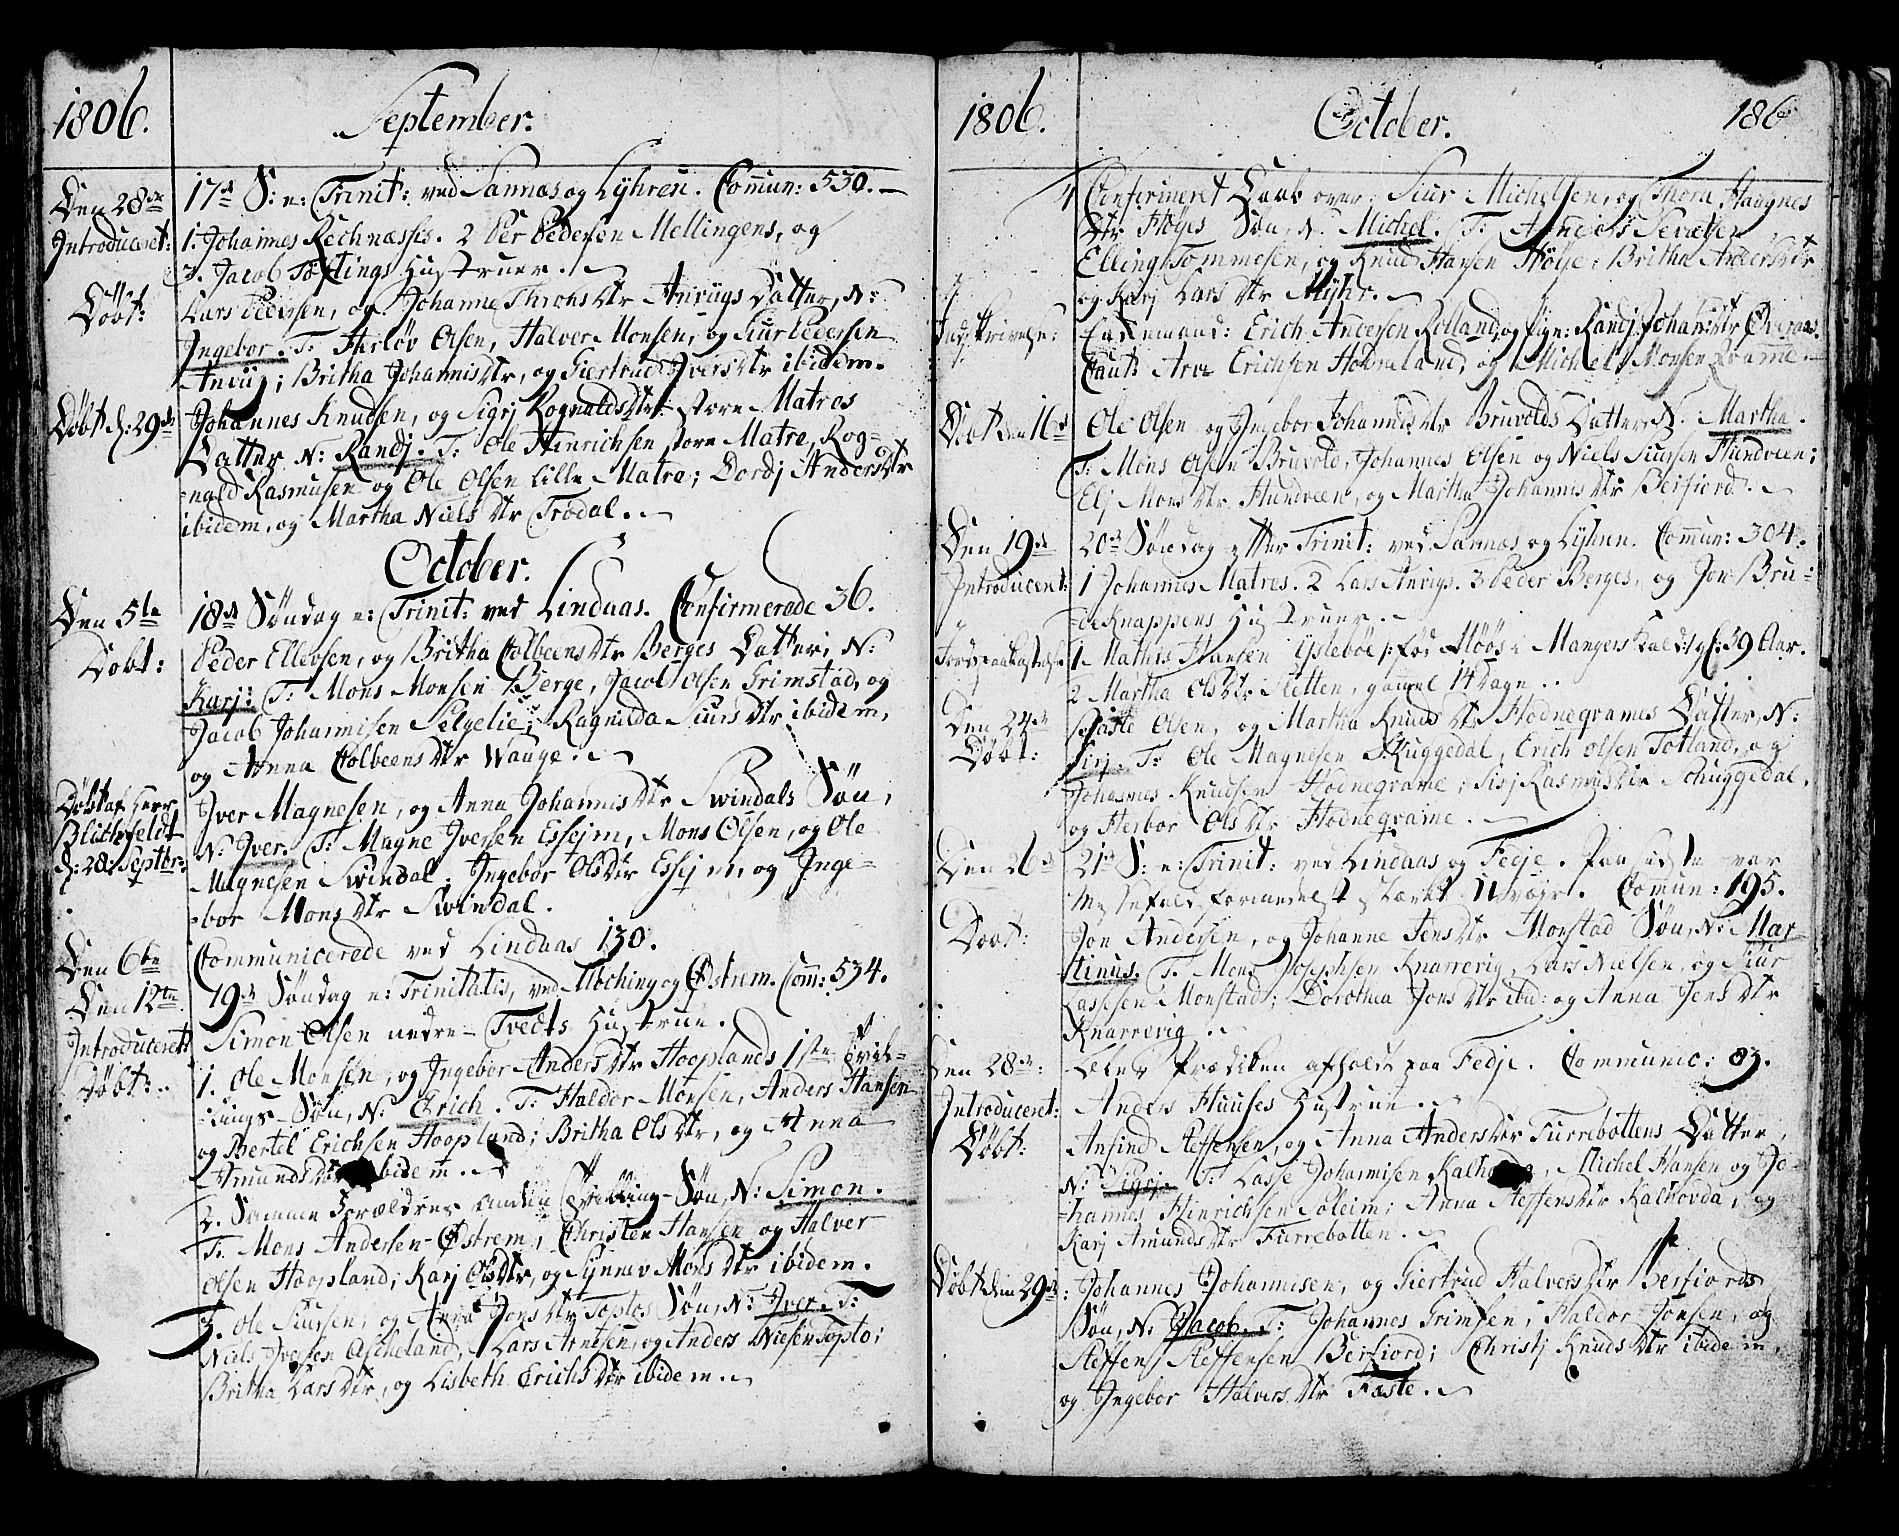 1806.
September.
Den 28de 17de S: e: Trinit: ved Sannæs og Lÿhren. Commun: 530.
Introduceret: 1. Johannes Rechnæsses. 2 Per Pedersen Mellingens, og
3. Jacob Toftings Hustruer.
Døbt: Lars Pedersen, og Johanne Throns Dtr Anviigs Datter, N:
Ingebor. T: Herløv Olsen, Halver Monsen, og Siur Pedersen
Anviig; Britha Johannis Dtr, og Giertrud Ivers Dtr ibidem.
Døbt d: 29de Johannes Knudsen, og Sigrj Rognalds Dtr store Matres
Datter N: Randj. T: Ole Hinrichsen store Matre, Rog=
=nald Rasmusen og Ole Olsen Lille Matre; Dordj Anders Dtr
ibidem, og Martha Niels Dtr Trodal.
October.
Den 5te 18de Søndag e: Trinit: ved Lindaas. Confirmerede 36.
Døbt: Peder Ellevsen, og Britha Colbeens Dtr Berges Datter, N:
Karj: T: Mons Monsen Berge, Jacob Olsen Grimstad, og
Jacob Johannisen Selgelie; Ragnilda Siurs Dtr ibidem,
og Anna Colbeens Dtr Wauge.
Døbt af Herr
Blichfeldt
d: 28: Septbr:
Iver Magnesen, og Anna Johannis Dtr Swindals Søn,
N: Iver. T: Magne Iversen Essejm, Mons Olsen, og Ole
Magnesen Swindal; Ingebor Ols Dtr Essejm, og Inge=
=bor Mons Dtr Swindal.
Den 6te Communicerede ved Lindaas 130.
Den 12te 19de Søndag e: Trinitatis, ved Moching og Østrem. Com: 534.
Introduceret: Simon Olsen nedre Tvedts Hustrue.
Døbt: 1. Ole Monsen, og Ingebor Anders Dtr Hooplands 1ste Tvil=
=lings Søn, N: Erich. T: Haldor Monsen, Anders Hansen
og Bertel Erichsen Hoopland; Britha Ols Dtr, og Anna
Amunds Dtr ibidem.
2. Samme Forældres anden Tvilling Søn, N: Simon.
T: Mons Andersen Østrem, Christen Hansen og Halver
Olsen Hoopland; Karj Ols Dtr, og Synnev Mons Dtr ibidem.
3. Ole Siursen, og Anna Jons Dtr Toptos Søn, N: Iver. T:
Niels Iversen Ascheland, Lars Arnesen, og Anders Nielsen Topto;
Britha Lars Dtr, og Lisbeth Erichs Dtr ibidem.
1806.
October.
186
4 Confirmeret Daab over Siur Michelsen, og Thora Haagnes
Dtr Høÿes Søn, N: Michel. T: Anders
Elling Tommesen, og Knud Hansen Høÿe; Britha Anders Dtr
og Karj Lars Dtr Mÿhr.
Enkemand: Erich Andersen Rolland, og Pign: Randj Johan: Dtr
Caut: Erichsen Hodneland, og Michel Monsen
Døbt den 16de Ole Olsen, og Ingebor Johannis Dtr Bruvolds Datter, N: Martha.
T: Mons Olsen Bruvold, Johannes Olsen og Niels Siursen Hundveen;
Elj Mons Dtr Hundveen, og Martha Johannis Dtr Berfiord.
Den 19de 20de Søndag efter Trinit: ved Sannæs og Lÿhren. Commun: 304.
Introduceret: 1 Johannes Matres. 2 Lars Anvigs. 3 Peder Berges, og Jon Bru=
=deKnappens Hustruer.
Jordspaakastelse 1 Mathis Hansen Ÿsleboe, fød i Mangers Kald: 39 Aar.
2 Martha Ols Dtr Sletten, gammel 14 Dage.
Den 24de
Døbt: Olsen, og Martha Knuds Dtr Hodnegrames Datter, N:
Sirj. T: Ole Magnesen Skuggedal, Erich Olsen Totland, og
Johannes Knudsen Hodnegrame; Sirj Rasmus Dtr Schuggedal,
og Herbor Ols Dtr Hodnegrame.
Den 26de 21de S: e: Trinit: ved Lindaas og Fedje. Paa sidste var
Messefald, formedelst Uvejr. Comun: 195.
Døbt: Jon Andersen, og Johanne Jens Dtr Monstad Søn, N: Mar
tinus. T: Mons Josephsen Knarrevig, Lars Nielsen, og Siur
Lassesen Monstad; Dorothea Jons Dtr ibid: og Anna Jens Dtr
Knarrevig.
Den 28de: Prædiken afholdt paa Fedje. Communic: 83.
Introduceret: Anders Huuses Hustrue.
Døbt: Anfind Steffensen, og Anna Anders Dtr Furrebottens Datter,
N: Sigrj. T: Lasse Johannisen Kalhovda, Michel Hansen og Jo=
=hannes Hinrichsen Soleim; Anna Steffens Dtr Kalhovda, og
Karj Amunds Dtr Furrebotten.
Døbt den 29de: Johannes Johannisen, og Giertrud Halvers Dtr Berfiords
Søn, N: Jacob. T: Johannes Grimsen, Haldor Jonsen, og
Steffen Steffensen Berfiord; Christj Knuds Dtr ibidem,
og Ingebor Halvers Dtr Fæste.